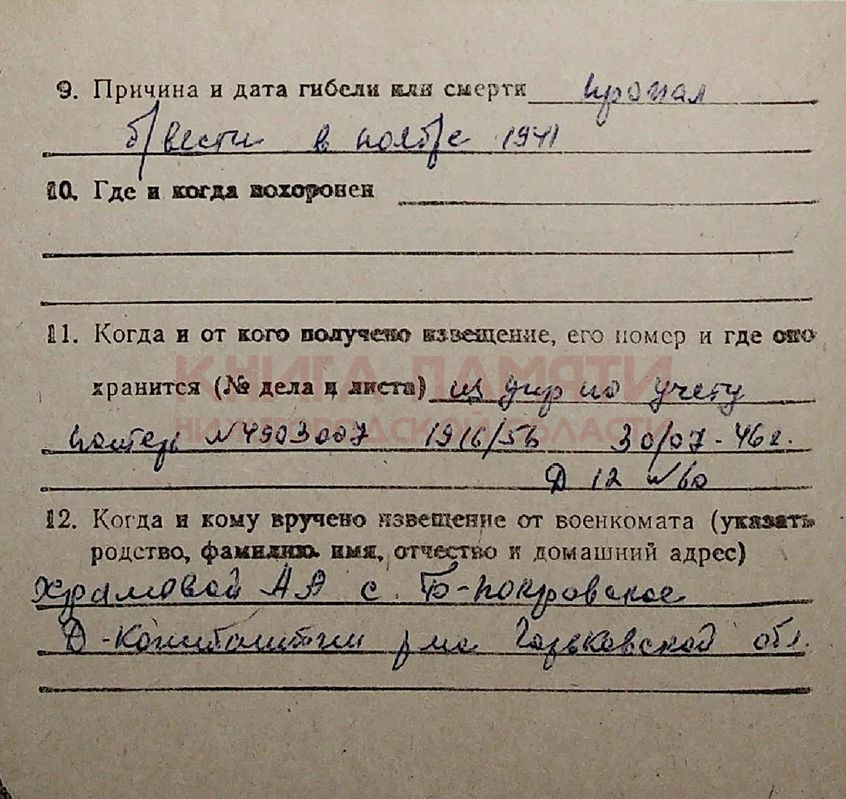 9. Причина и дата гибели или смерти пропал
б/вести в ноябре 1941
10. Где и когда похоронен
11. Когда и от кого получено извещение, его номер и где оно
КНИГА ПАМЯТИ
хранится (№ дела и листа) из упр по учету
НИЖЕГОРОДСКОЙ ОБЛАСТИ
потерь N 4903007 1916/56 30/07-46г.
Д 12 №60
12. Когда и кому вручено извещение от военкомата (указать
родство, фамилию, имя, отчество и домашний адрес)
Храмовой АЯ с. Б-Покровское
Д-Константин р-на Горьковской обл.